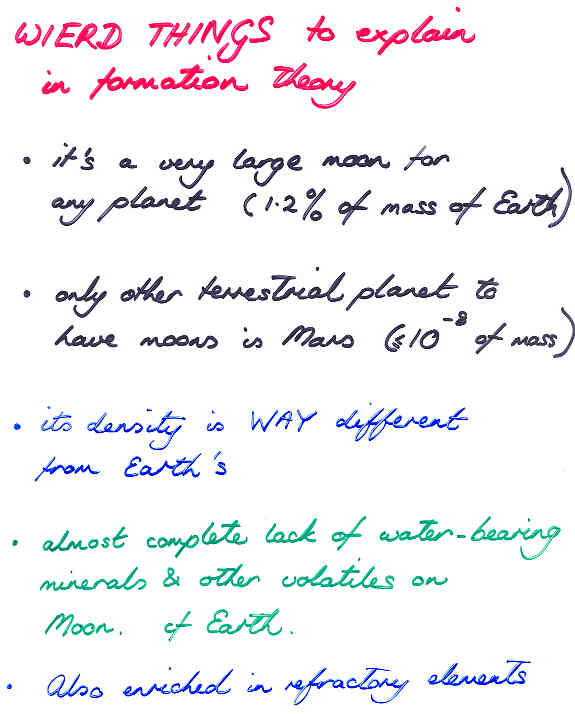 WIERD THINGS to explain
in formation theory
• it's a very large moon for
any planet (1.2% of mass of Earth)
• only other terrestrial planet to
have moons is Mars (≤10⁻⁸ of mass)
• its density is WAY different
from Earth's
• almost complete lack of water-bearing
minerals & other volatiles on
Moon. cf Earth.
• Also enriched in refractory elements